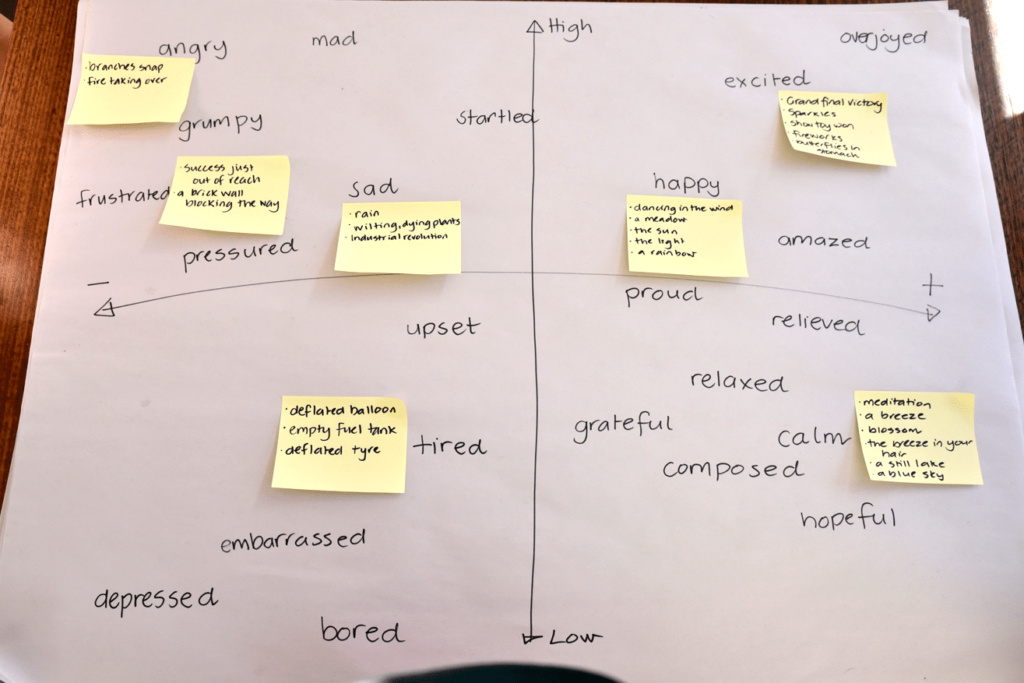 High
angry
mad
overjoyed
• branches snap
• fire taking over
excited
• Grand final victory
• Sparkles
• show toy won
• fireworks
butterflies in
stomach
startled
grumpy
• success just
out of reach
• a brick wall
blocking the way
frustrated
sad
• rain
• wilting, dying plants
• industrial revolution
happy
• dancing in the wind
• a meadow
• the sun
• the light
• a rainbow
pressured
amazed
−
+
proud
upset
relieved
relaxed
• deflated balloon
• empty fuel tank
• deflated tyre
tired
grateful
calm
• meditation
• a breeze
• blossom
the breeze in your
hair
• a still lake
• a blue sky
composed
hopeful
embarrassed
depressed
bored
Low